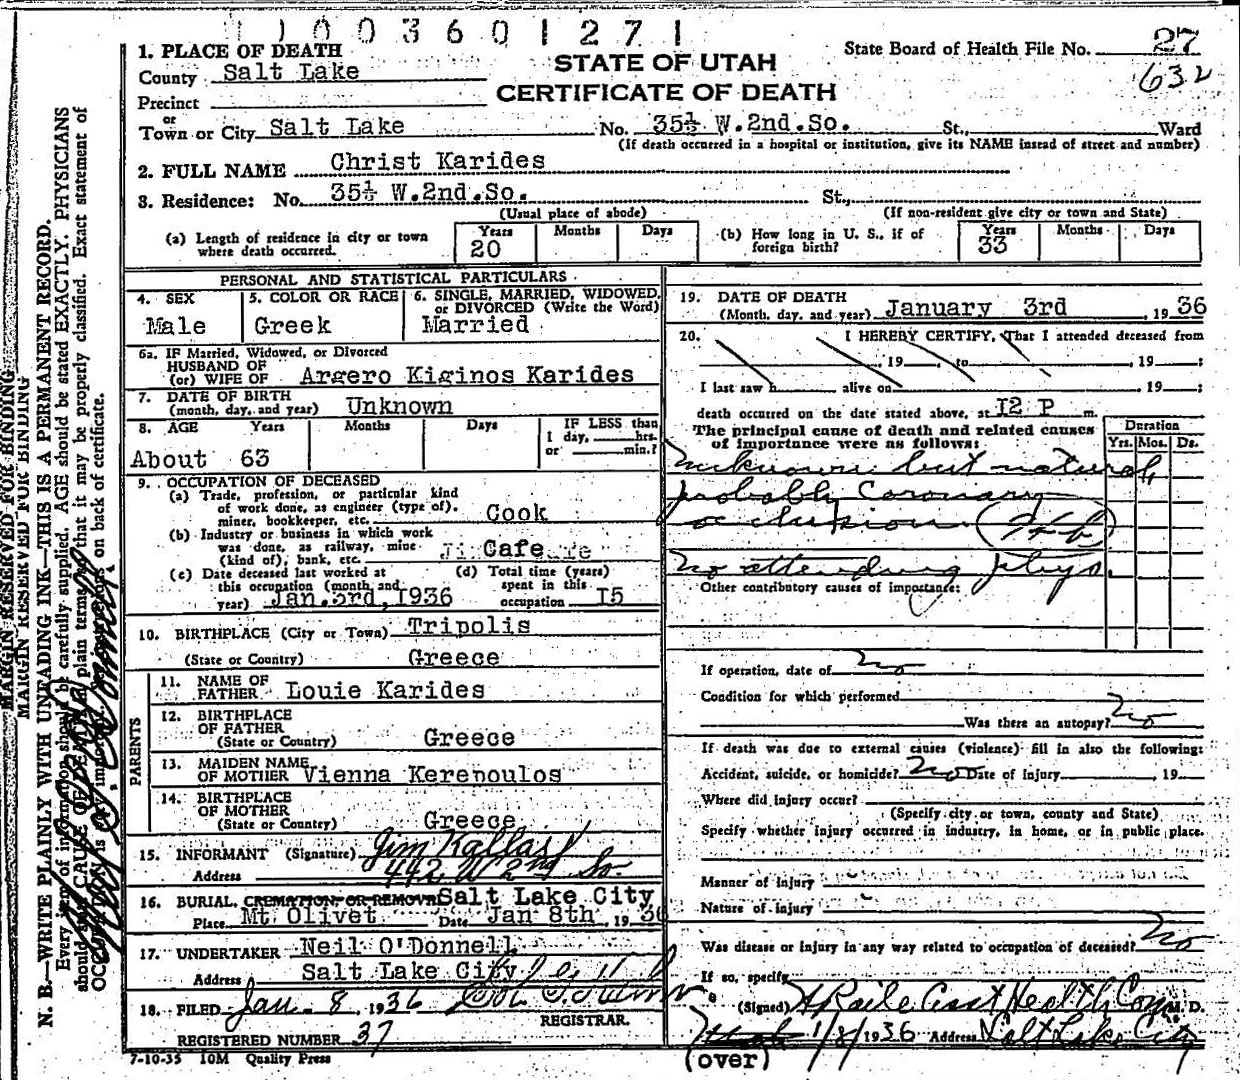 11003601271
1. PLACE OF DEATH
County Salt Lake
Precinct
or
Town or City Salt Lake No. 35½ W.2nd.So. St., Ward
STATE OF UTAH
CERTIFICATE OF DEATH
State Board of Health File No. 27
632
(If death occurred in a hospital or institution, give its NAME insead of street and number)
2. FULL NAME Christ Karides
3. Residence: No. 35½ W.2nd.So. St.,
(Usual place of abode) (If non-resident give city or town and State)
(a) Length of residence in city or town where death occurred. Years 20 Months Days
(b) How long in U. S., if of foreign birth? Years 33 Months Days
PERSONAL AND STATISTICAL PARTICULARS
4. SEX Male
5. COLOR OR RACE Greek
6. SINGLE, MARRIED, WIDOWED, or DIVORCED (Write the Word) Married
6a. IF Married, Widowed, or Divorced
HUSBAND OF
(or) WIFE OF Argero Kiginos Karides
7. DATE OF BIRTH
(month, day, and year) Unknown
8. AGE Years Months Days IF LESS than
1 day, hrs.
or min.?
About 63
9. OCCUPATION OF DECEASED
(a) Trade, profession, or particular kind
of work done, as engineer (type of).
miner, bookkeeper, etc. Cook
(b) Industry or business in which work
was done, as railway, mine
(kind of), bank, etc. Cafe
(c) Date deceased last worked at
this occupation (month and
year) Jan.3rd,1936
(d) Total time (years)
spent in this
occupation 15
10. BIRTHPLACE (City or Town) Tripolis
(State or Country) Greece
PARENTS
11. NAME OF
FATHER Louie Karides
12. BIRTHPLACE
OF FATHER
(State or Country) Greece
13. MAIDEN NAME
OF MOTHER Vienna Kerepoulos
14. BIRTHPLACE
OF MOTHER
(State or Country) Greece
15. INFORMANT (Signature) Jim Kallas
Address 442 W 2nd So.
16. BURIAL, CREMATION, OR REMOVAL Salt Lake City
Place Mt. Olivet Date Jan 8th, 1936
17. UNDERTAKER Neil O'Donnell
Address Salt Lake City
18. FILED Jan. 8, 1936
REGISTRAR.
REGISTERED NUMBER 37
7-10-35 10M Quality Press
19. DATE OF DEATH
(Month, day, and year) January 3rd, 1936
20. I HEREBY CERTIFY, That I attended deceased from
, 19 , to , 19 ;
I last saw h alive on , 19 ;
death occurred on the date stated above, at 12 P m.
The principal cause of death and related causes
of importance were as follows:
Duration
Yrs. Mos. Ds.
Unknown but natural,
probably Coronary
occlusion
No attending phys.
Other contributory causes of importance:
If operation, date of no
Condition for which performed
Was there an autopsy? no
If death was due to external causes (violence) fill in also the following:
Accident, suicide, or homicide? no Date of injury , 19
Where did injury occur?
(Specify city or town, county and State)
Specify whether injury occurred in industry, in home, or in public place.
Manner of injury
Nature of injury
Was disease or injury in any way related to occupation of deceased? No
If so, specify
(Signed) Health Com M. D.
1/8/1936 Address Salt Lake City
(over)
MARGIN RESERVED FOR BINDING
MARGIN RESERVED FOR BINDING
N. B.—WRITE PLAINLY WITH UNFADING INK—THIS IS A PERMANENT RECORD.
Every item of information should be carefully supplied. AGE should be stated EXACTLY. PHYSICIANS
should state CAUSE OF DEATH in plain terms, so that it may be properly classified. Exact statement of
OCCUPATION is very important. on back of certificate.